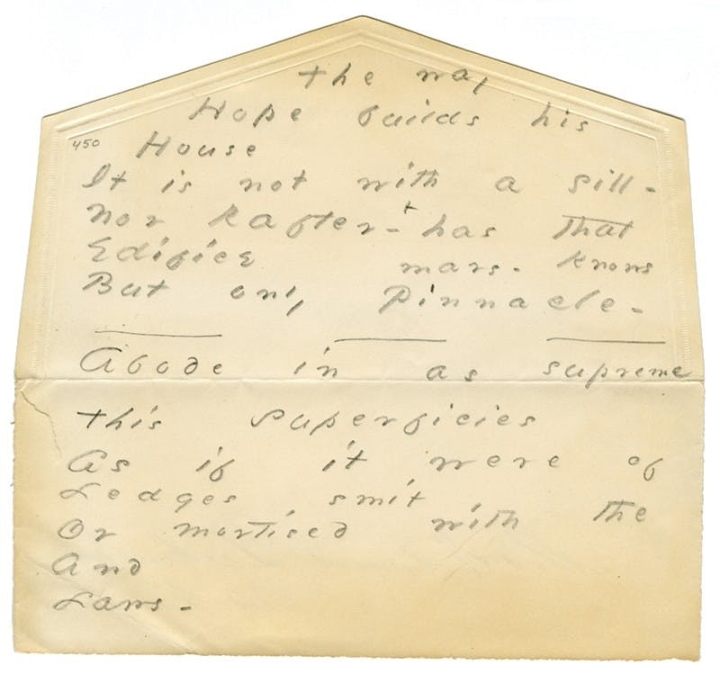 The way
Hope builds his
450
House
It is not with a sill -
Nor Rafter - + has that
Edifice mars - knows
But only Pinnacle -
Abode in as supreme
This superficies
As if it were of
Ledges smit
Or mortised with the
And
Laws -